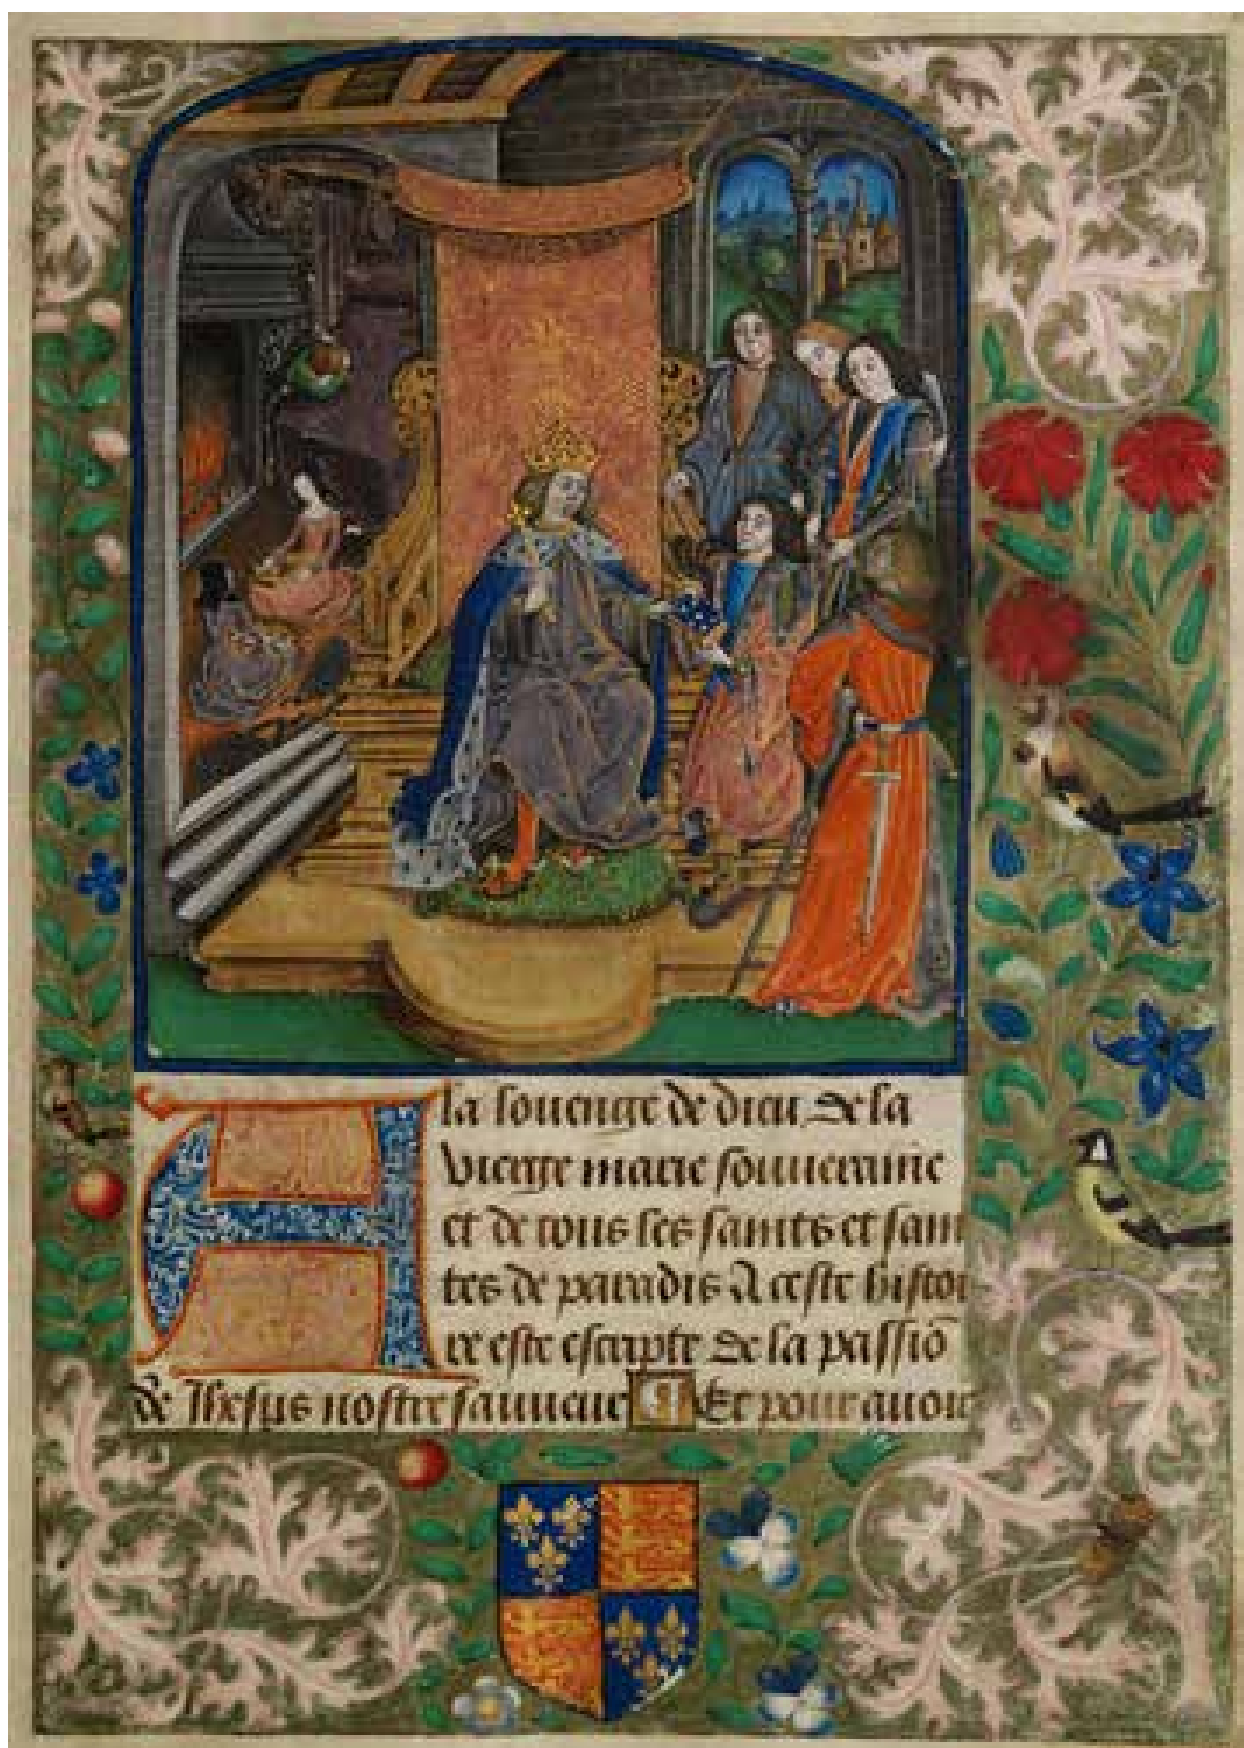 A la louenge de dieu de la
vierge marie souueraine
et de tous les saints et sain
tes de paradis A ceste histoi
re este escripte de la passiō
de Ihesus nostre sauueur ¶ Et pour auoir